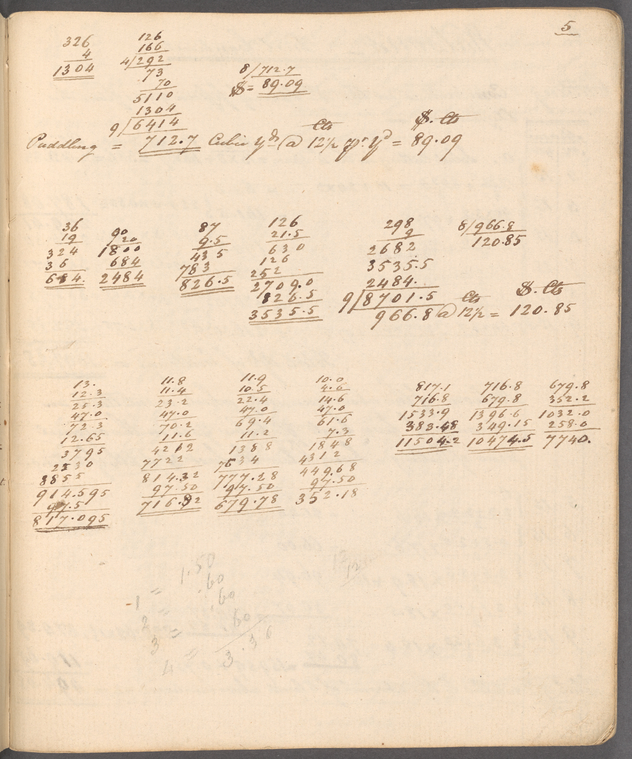 5
326 126
4 166
1304 4/292
73 8/712.7
70 $= 89.09
5110
1304
9/6414 Cts $. Cts
Puddling = 712.7 Cubic Yds @ 12½ pr Yd = 89.09
36 90 87 126 298 8/966.8
19 20 9.5 21.5 9 120.85
324 1800 435 630 2682
36 684 783 126 3535.5
684. 2484 826.5 252 2484.
2709.0 9/8701.5 Cts $. Cts
826.5 966.8 @ 12½ = 120.85
3535.5
13. 11.8 11.9 10.0 817.1 716.8 679.8
12.3 11.4 10.5 4.6 716.8 679.8 352.2
25.3 23.2 22.4 14.6 1533.9 1396.6 1032.0
47.0 47.0 47.0 47.0 383.48 349.15 258.0
72.3 70.2 69.4 61.6 11504.2 10474.5 7740.
12.65 11.6 11.2 7.3
3795 4212 1388 1848
2530 7722 7634 4312
8855 814.32 777.28 449.68
914.595 97.50 97.50 97.50
97.5 716.82 679.78 352.18
817.095
1.50
1 = .60
2 = .60
3 = 60
4 = 3.36